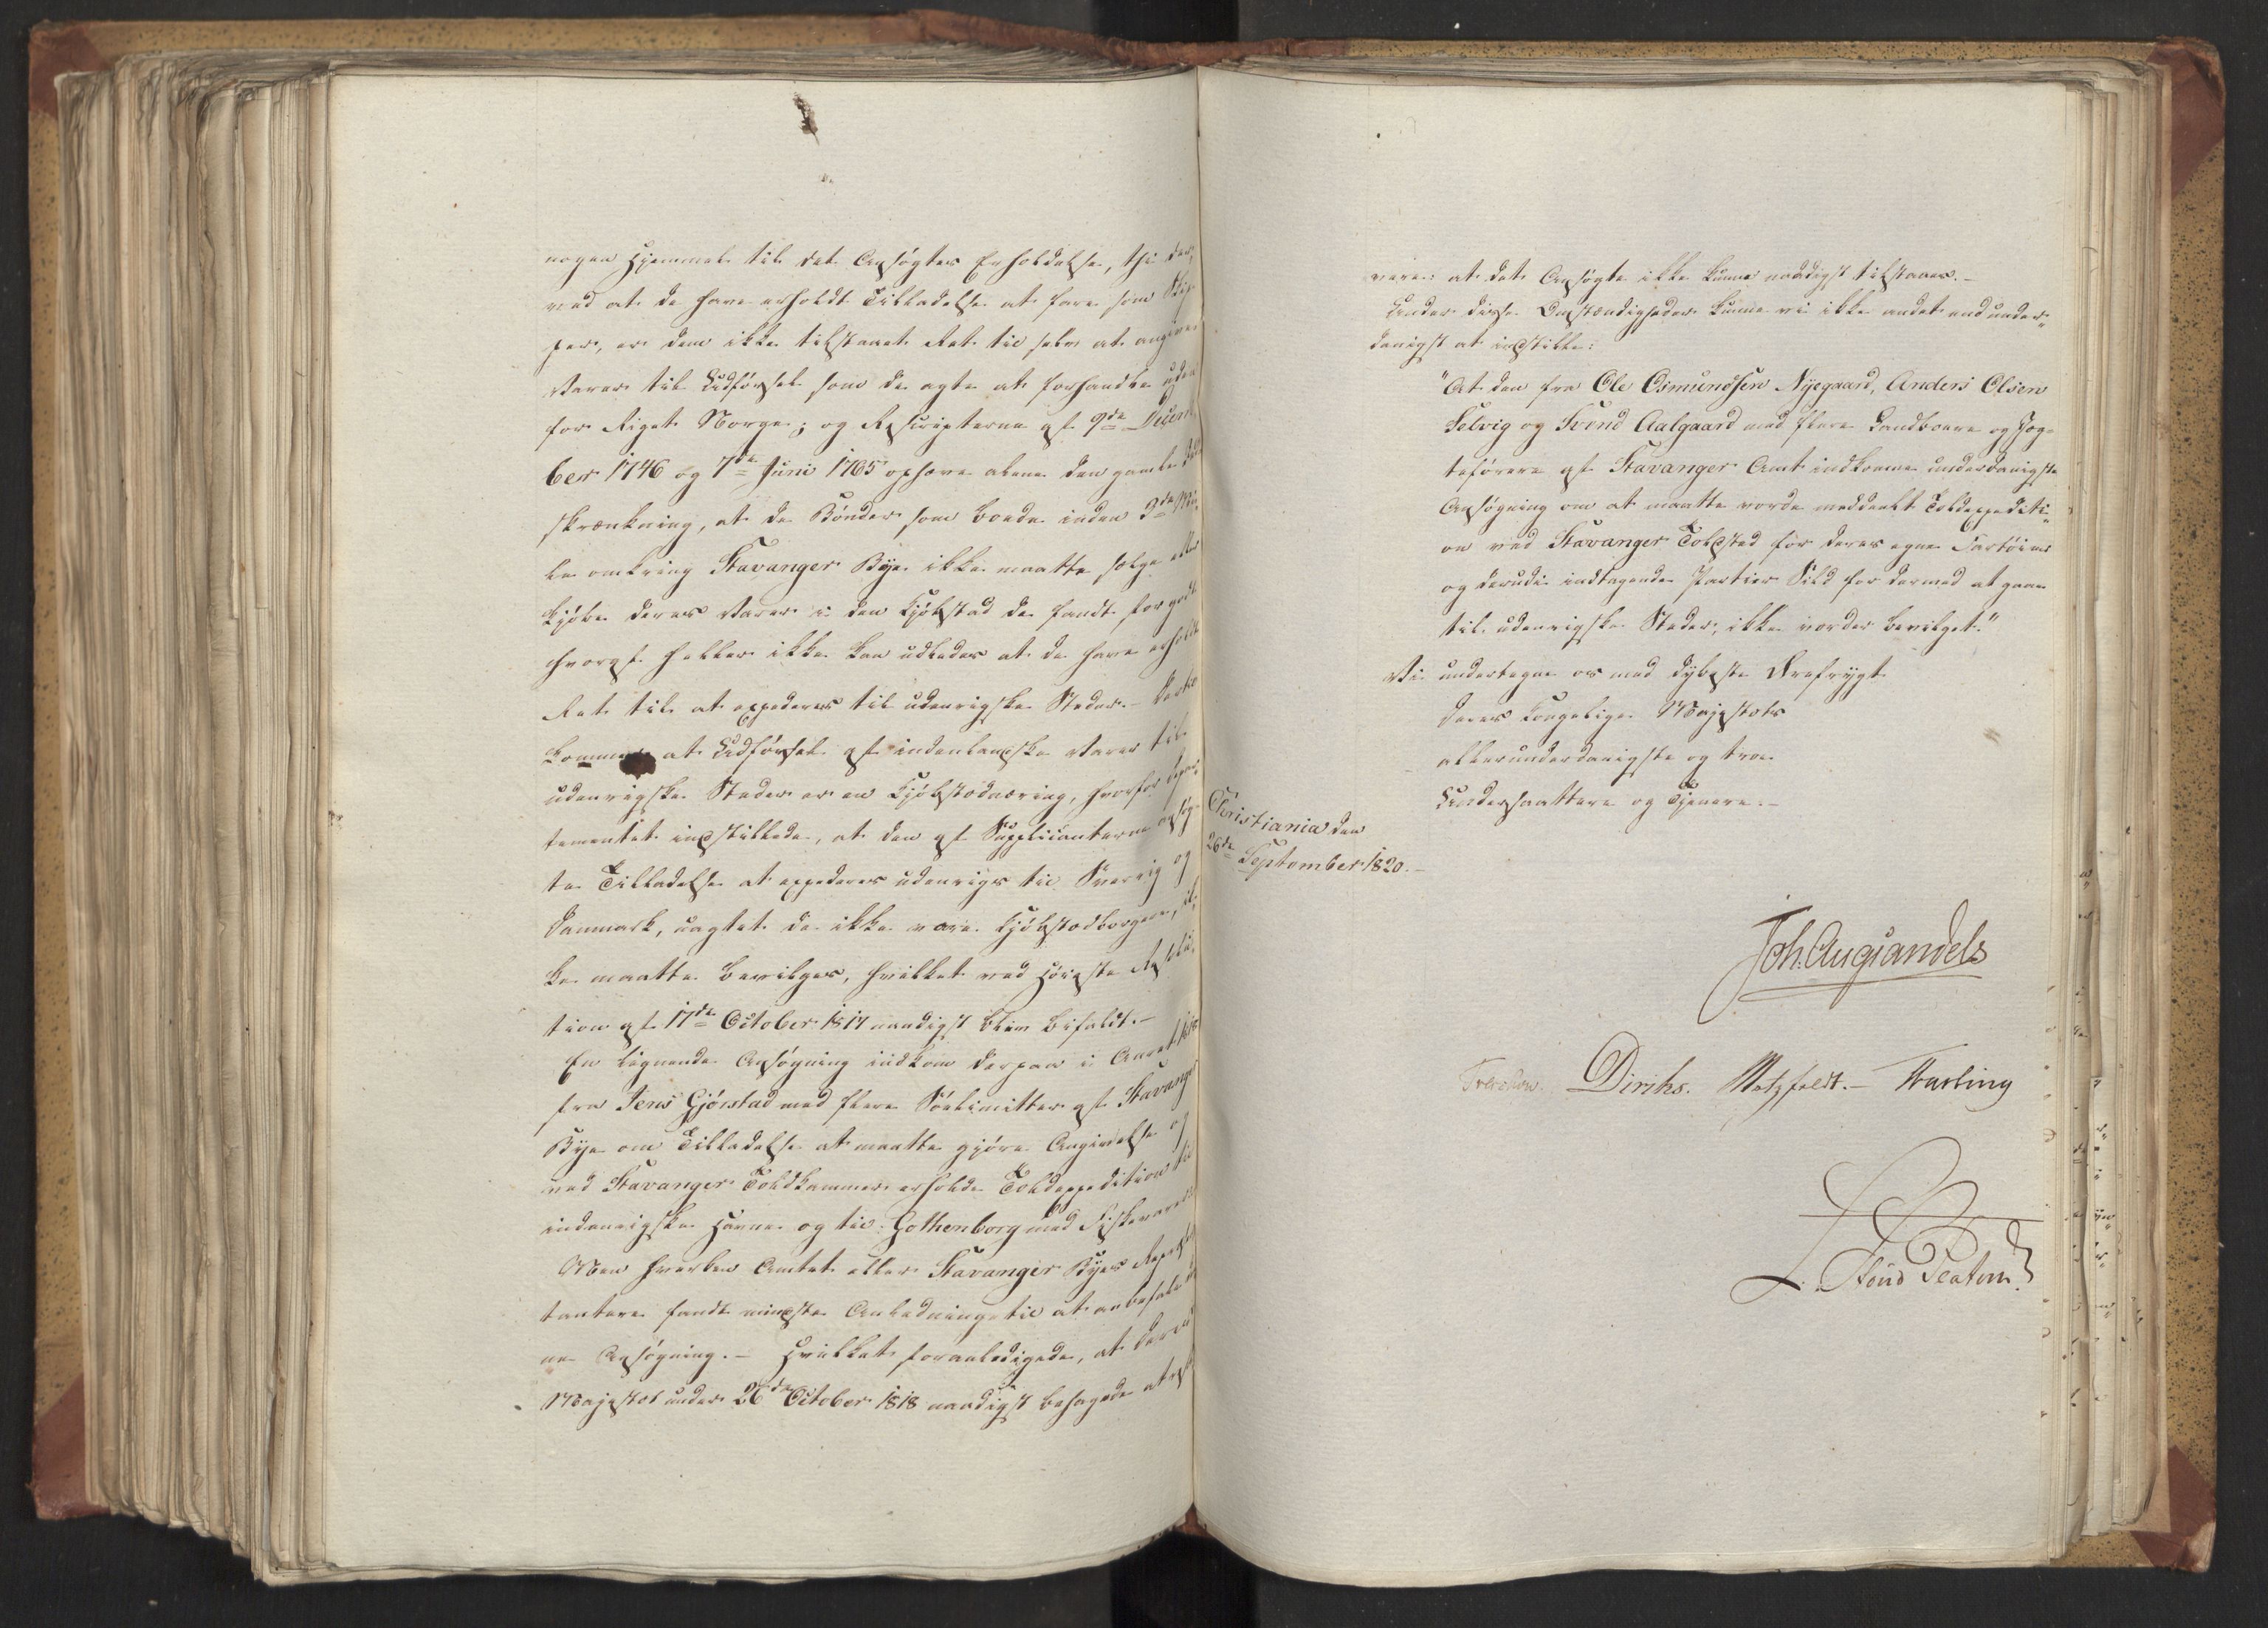 nogen Hjemmel til det Ansøgtes Erholdelse, thi der,
ved at de have erholdt Tilladelse at fare som Skip
per, er dem ikke tilstaaet Ret til selv at angive
Varer til Udførsel som de agte at forhandle uden
for Riget Norge; og Rescripterne af 9de Decem
ber 1746 og 7de Juni 1765 ophæve alene den gamle Ind
skrænkning, at de Bønder som boede inden 3de Mi,
le omkring Stavanger Bye ikke maatte sælge eller
kjøbe deres Varer i den Kjøbstad de fandt for godt
hvoraf heller ikke kan udledes at de have erholdt
Ret til at expederes til udenrigske Steder. - Hertil
kommer at Udførsel af indenlandske Varer til
udenrigske Steder er en Kjøbstadnæring, hvorfor Depar
tementet indstillede, at den af Supplicanterne ansøg
te Tilladelse at expederes udenrigs til Sverrig og
Danmark, uagtet de ikke vare Kjøbstadborgere, ik,
ke maatte bevilges, hvilket ved Høieste Resolu,
tion af 17de October 1817 naadigst blev bifaldt. -
En lignende Ansøgning indkom derpaa i Aaret 1818
fra Jens Gjørstad med flere Søelimitter af Stavanger
Bye om Tilladelse at maatte gjøre Angivelse og
ved Stavanger Toldkammer erholde Toldexpedition til
indenrigske Havne og til Gothenborg med Fiskevarer
Men hverken Amtet eller Stavanger Byes Repræsen
tantere fandt mindste Anledning til at anbefale den
ne Ansøgning. - Hvilket foranledigede, at Deres
Majestæt under 26de October 1818 naadigst behagede at res
vere: at det Ansøgte ikke kunne naadigst tilstaaes. -
Under disse Omstændigheder kunne vi ikke andet end under„
danigst at indstille:
"At den fra Ole Osmundsen Nyegaard, Anders Olsen
Selvig og Svend Aalgaard med flere Landboere og Jæg-
teførere af Stavanger Amt indkomne underdanigste
Ansøgning om at maatte vorde meddeelt Toldexpediti„
on ved Stavanger Toldsted for deres egne Fartøier
og derudi indtagende Partier Sild for dermed at gaae
til udenrigske Steder, ikke vorder bevilget."
Vi undertegne os med dybeste Ærefrygt
Deres Kongelige Majestæts
allerunderdanigste og troe
Undersaattere og Tjenere. -
Christiania den
26de September 1820. -
Joh. Aug. Sandels
Treschow. Diriks. Motzfeldt. - Fasting